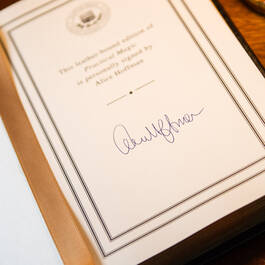 This leather-bound edition of
Practical Magic
is personally signed by
Alice Hoffman